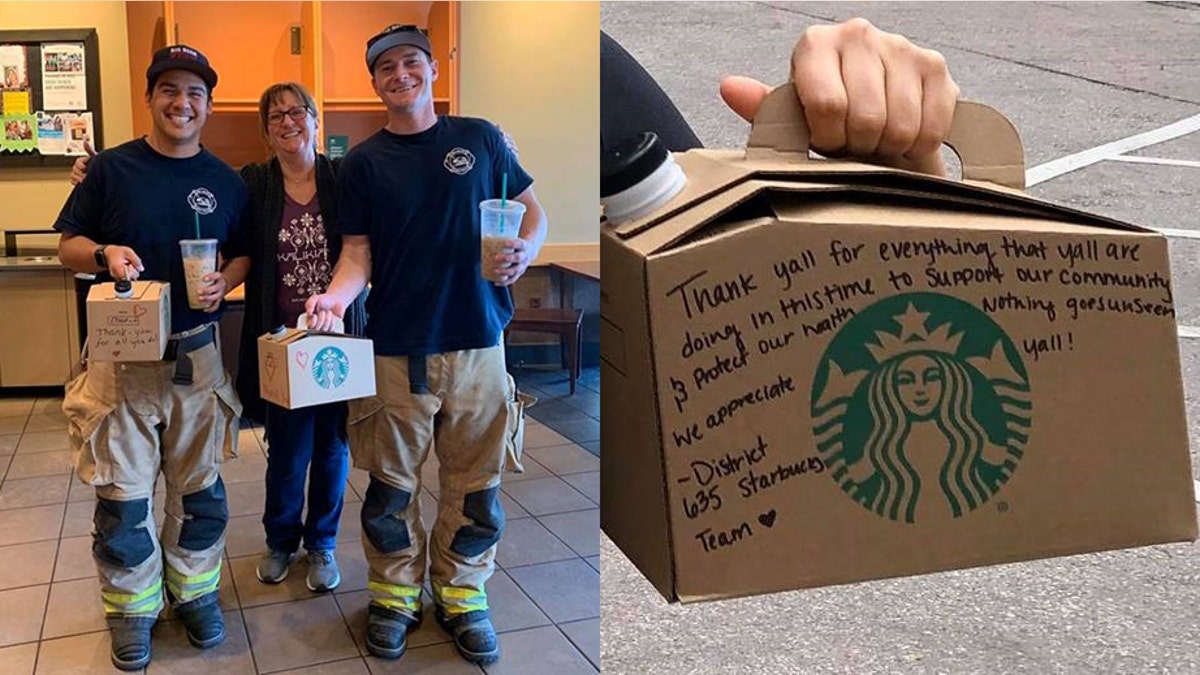 Thank-you
for all you do!
Thank yall for everything that yall are
doing in this time to support our community
& protect our health
Nothing goes unseen
yall!
We appreciate
-District
635 Starbucks
Team ♥